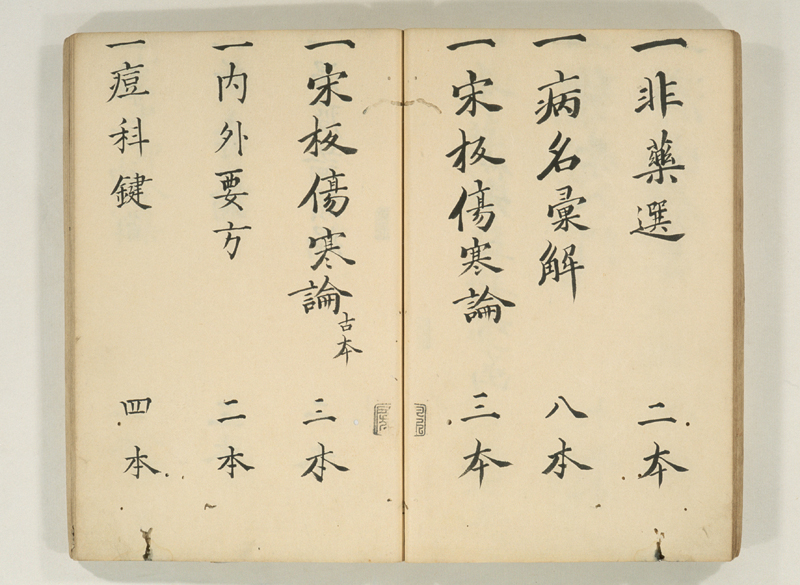 一非藥選 二本
一病名彙解 八本
一宋板傷寒論 三本
一宋板傷寒論 古本 三本
一内外要方 二本
一痘科鍵 四本